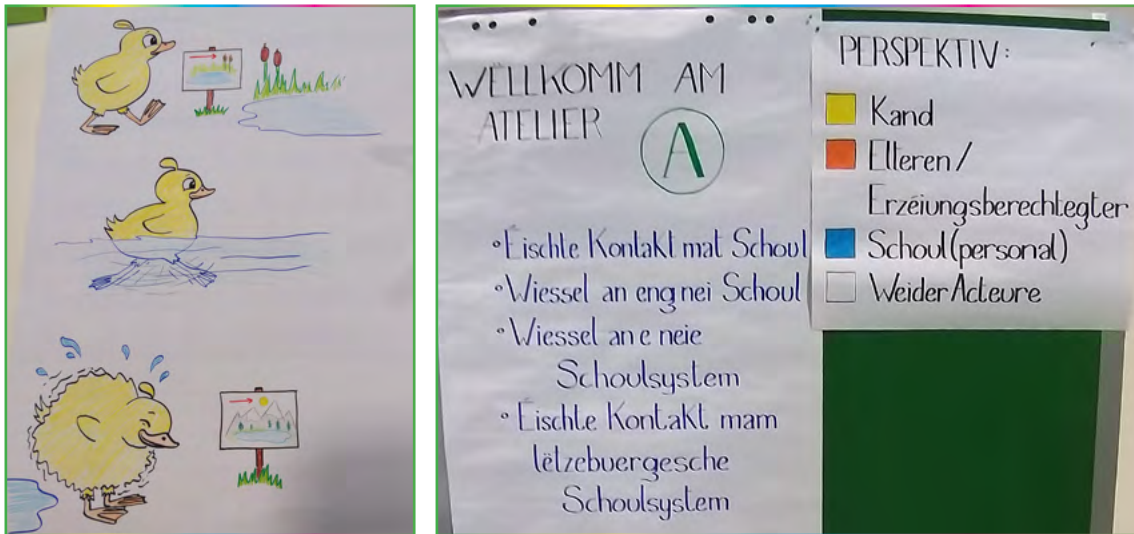 WËLLKOMM AM
ATELIER A
°Éischte Kontakt mat Schoul
°Wiessel an eng nei Schoul
°Wiessel an e neie
Schoulsystem
°Éischte Kontakt mam
lëtzebuergesche
Schoulsystem
PERSPEKTIV:
Kand
Elteren/
Erzéiungsberechtegter
Schoul(personal)
Weider Acteure